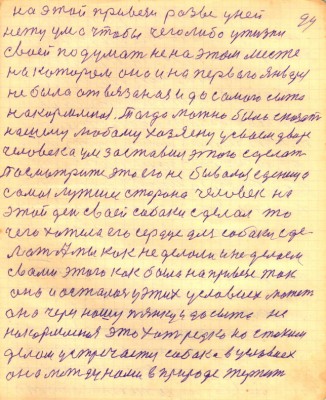 на этой привези разве у ней
94
нету ума чтобы чего либо у жизни
своей подумат не на этом месте
на котором она и на первого января
не была отвязаная и до самого сыта
накормлена. Тогда можно было сказат
нашому любому хозяену у своем дворе
человека ум заставил этого сделат
Посмотрите это его не бывалая
самая лутшая сторона человек на
этой ден своей собаки сделал то
чего хотела его сердце для собаки сде
лат А мы как не делали и не делаем
своими этого как была на привезе так
она и осталас у этих условиях может
она через нашу до сыта не
накормленая это хот редко но с таким
делом устречается собака в условиях
она между нами в природе